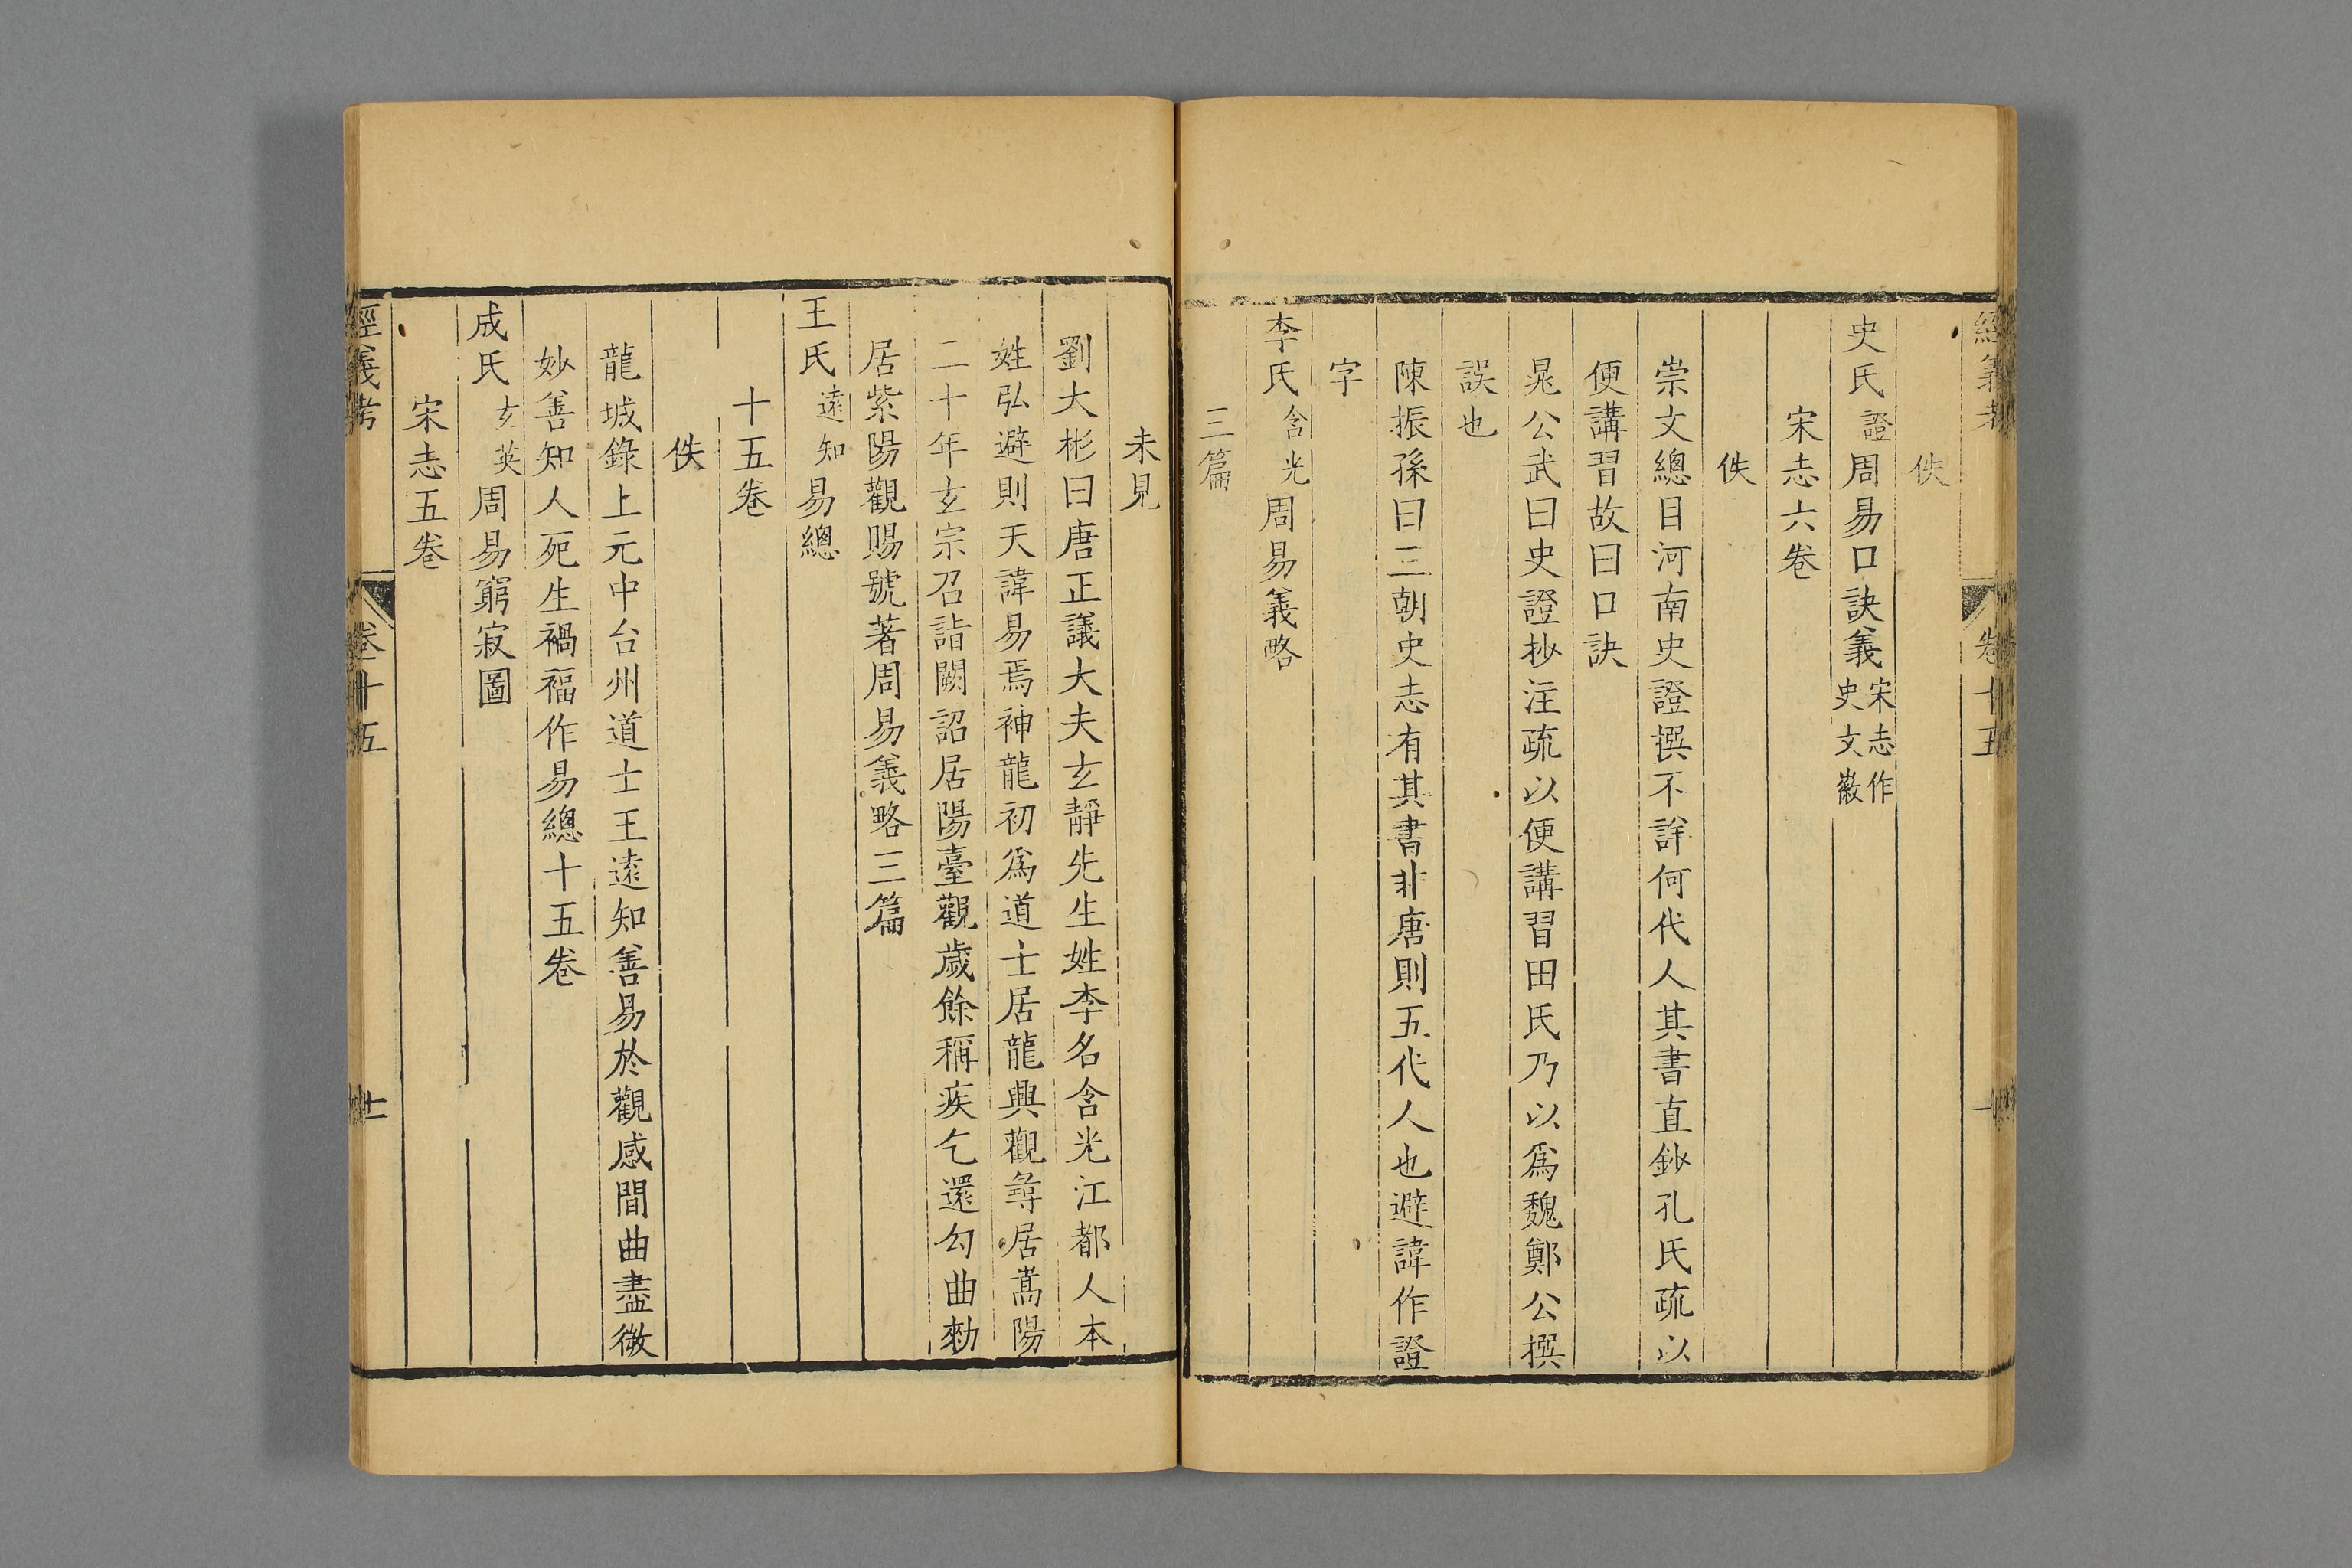 經義考 卷十五
佚
史氏證周易口訣義宋志作史文徽
宋志六卷
佚
崇文總目河南史證撰不詳何代人其書直鈔孔氏疏以
便講習故曰口訣
晁公武曰史證抄注疏以便講習田氏乃以爲魏鄭公撰
誤也
陳振孫曰三朝史志有其書非唐則五代人也避諱作證
字
李氏含光周易義略
三篇
未見
劉大彬曰唐正議大夫玄靜先生姓李名含光江都人本
姓弘避則天諱易焉神龍初爲道士居龍興觀尋居嵩陽
二十年玄宗召詣闕詔居陽臺觀歲餘稱疾乞還勾曲勑
居紫陽觀賜號著周易義略三篇
王氏遠知易總
十五卷
佚
龍城錄上元中台州道士王遠知善易於觀感間曲盡微
妙善知人死生禍福作易總十五卷
成氏玄英周易窮寂圖
宋志五卷
經義考 卷十五